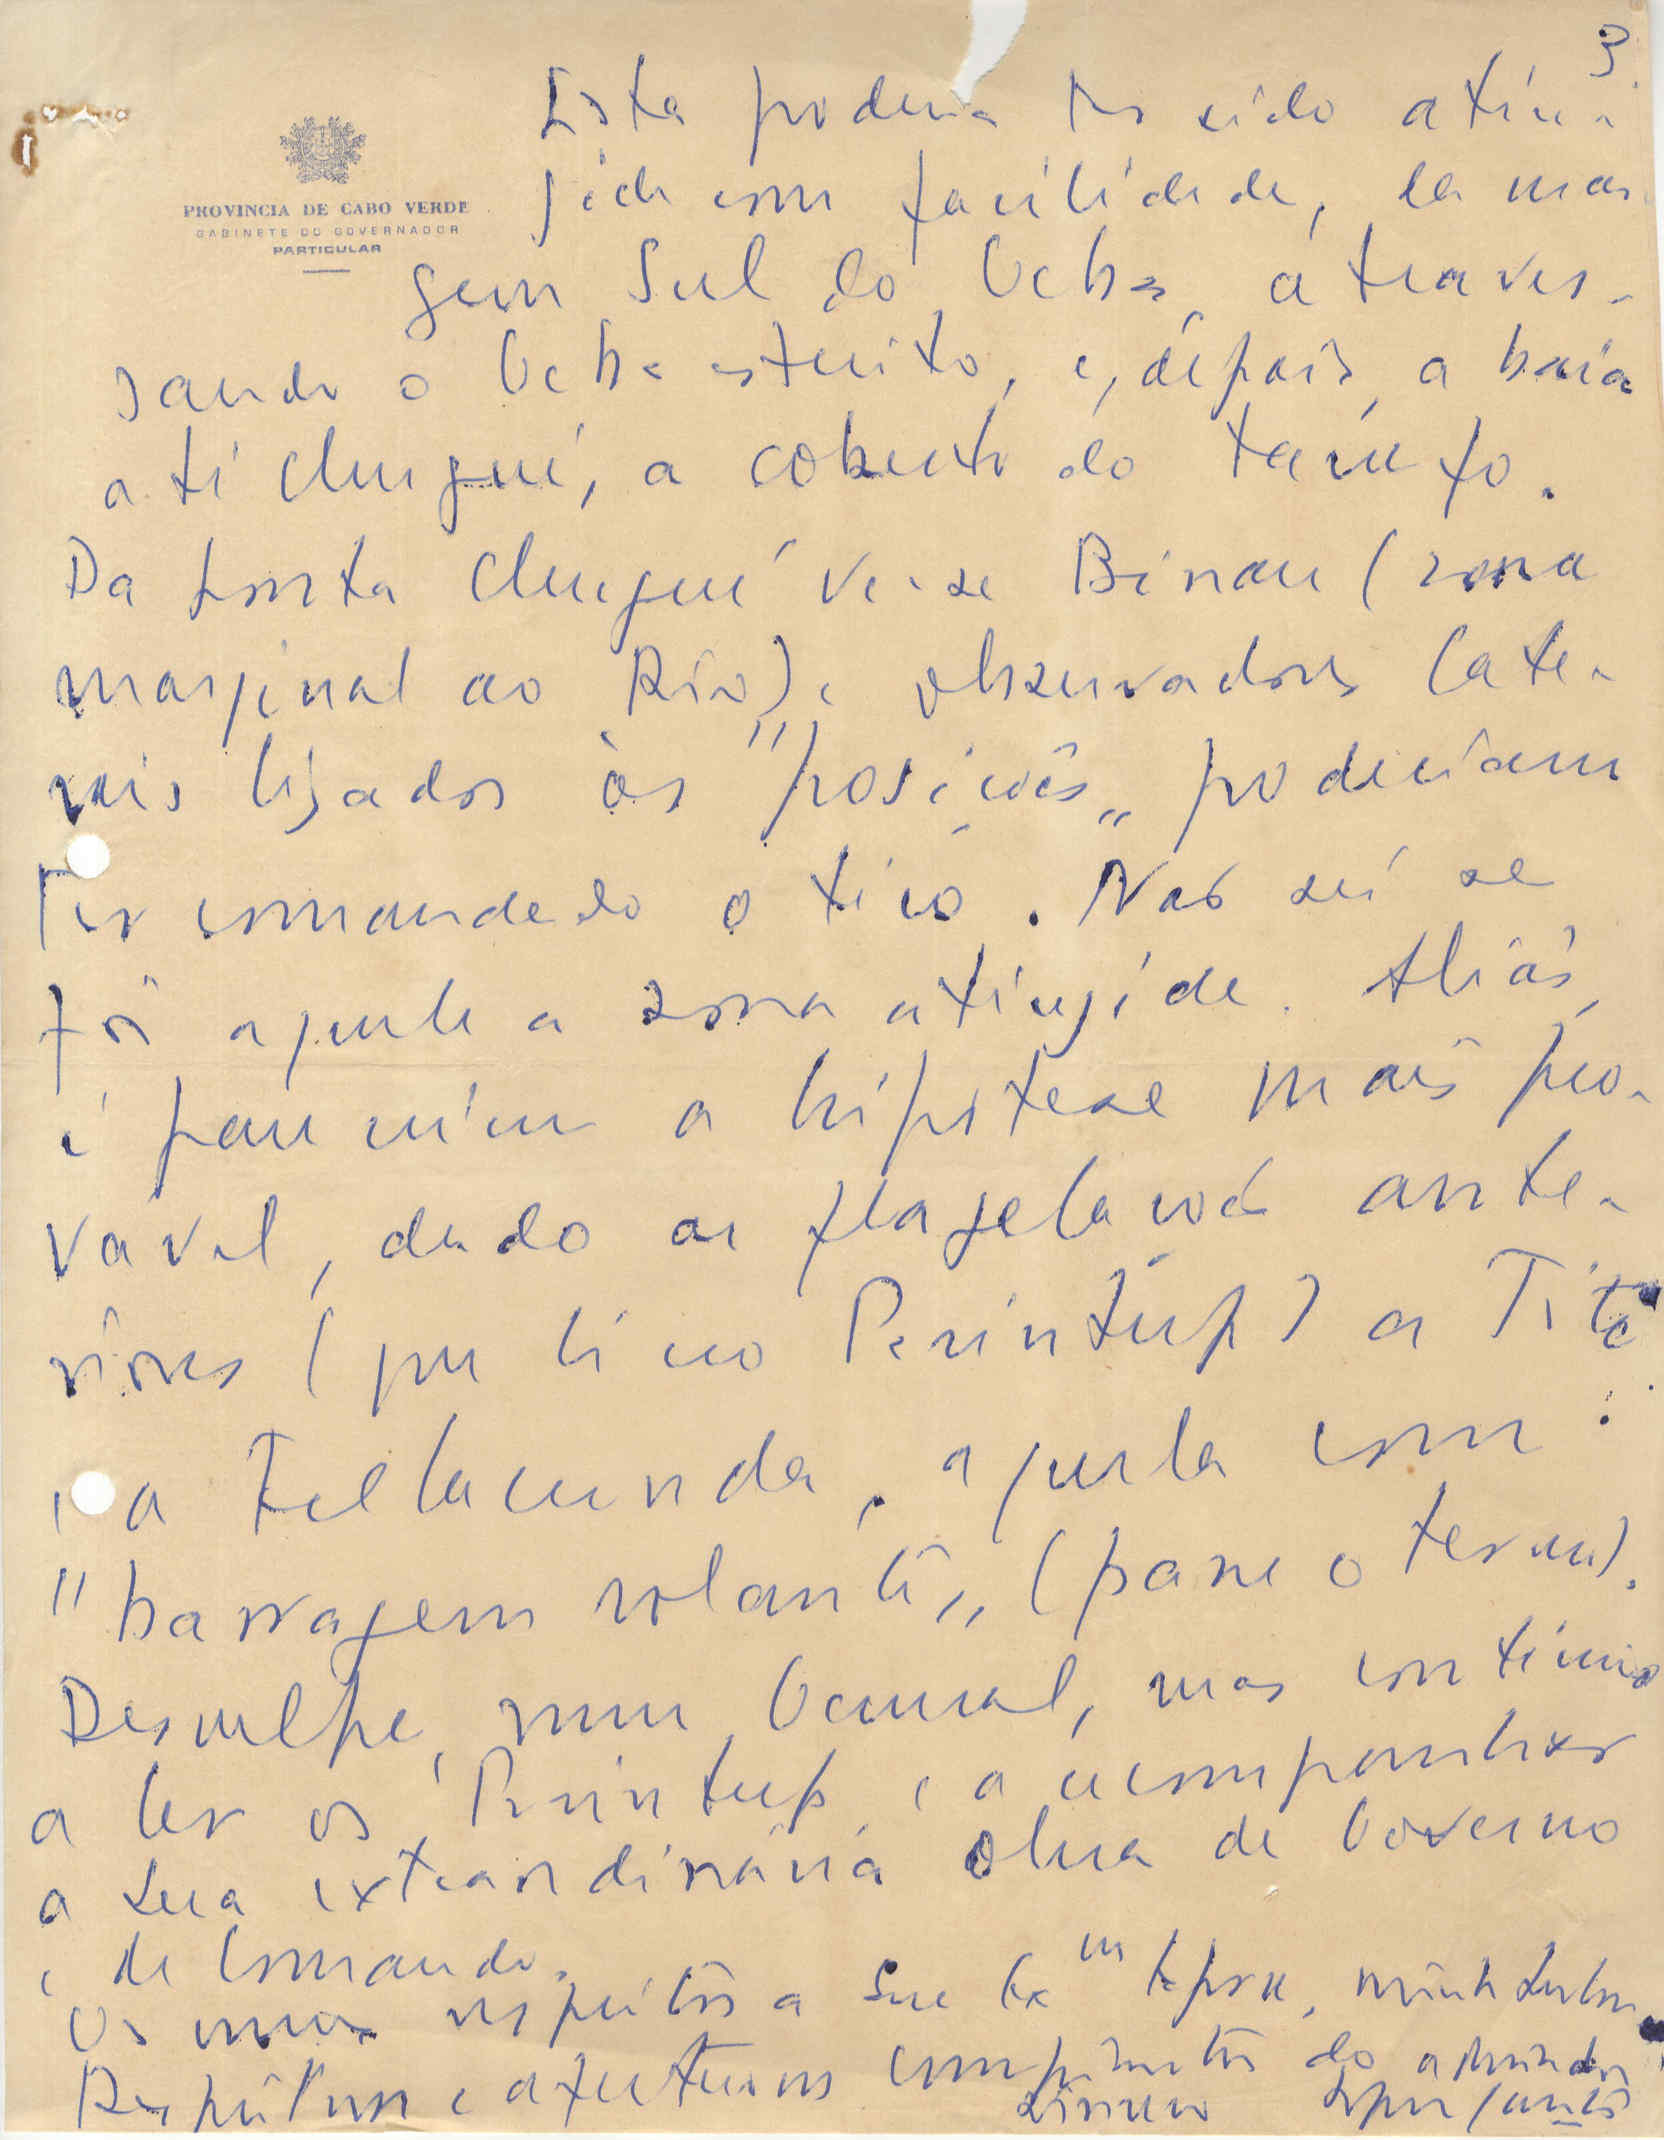 3.
PROVINCIA DE CABO VERDE
GABINETE DO GOVERNADOR
PARTICULAR
Esta poderia ter sido atin-
gida com facilidade, da mar-
gem Sul do Geba, atraves-
sando o Geba estreito, e, depois, a baía
até Chugué, a coberto do tarrafo.
Da ponta Chugué vê-se Bissau (zona
marginal ao Rio) e observadores late-
rais ligados às "posições" poderiam
ter comandado o tiro. Não sei se
foi aquela a zona atingida. Aliás,
é para mim a hipótese mais pro-
vável, dado as flagelações ante-
riores (que li no Perintrep) a Tite
e a Fulacunda, aquela com
"barragem rolante" (passe o termo).
Desculpe, meu General, mas continuo
a ler os Perintrep e a acompanhar
a sua extraordinária obra de Governo
e de Comando.
Os meus respeitos a Sua Exma Esposa, minha Senhora.
Respeitosos e afectuosos cumprimentos do admirador
sincero